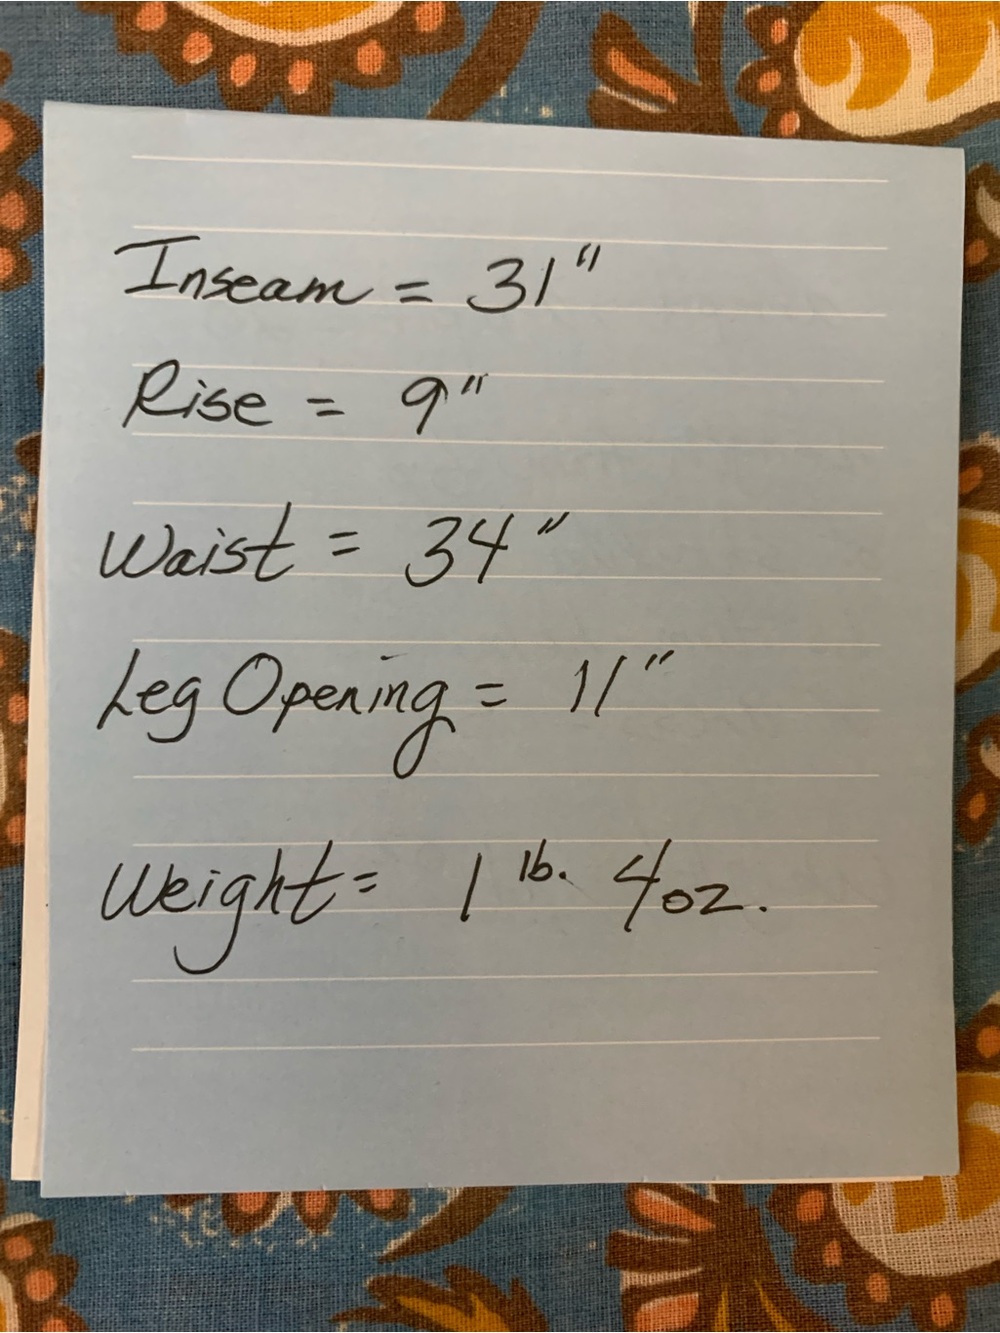 Inseam = 31"
Rise = 9"
Waist = 34"
Leg Opening = 11"
Weight = 1 lb. 4oz.